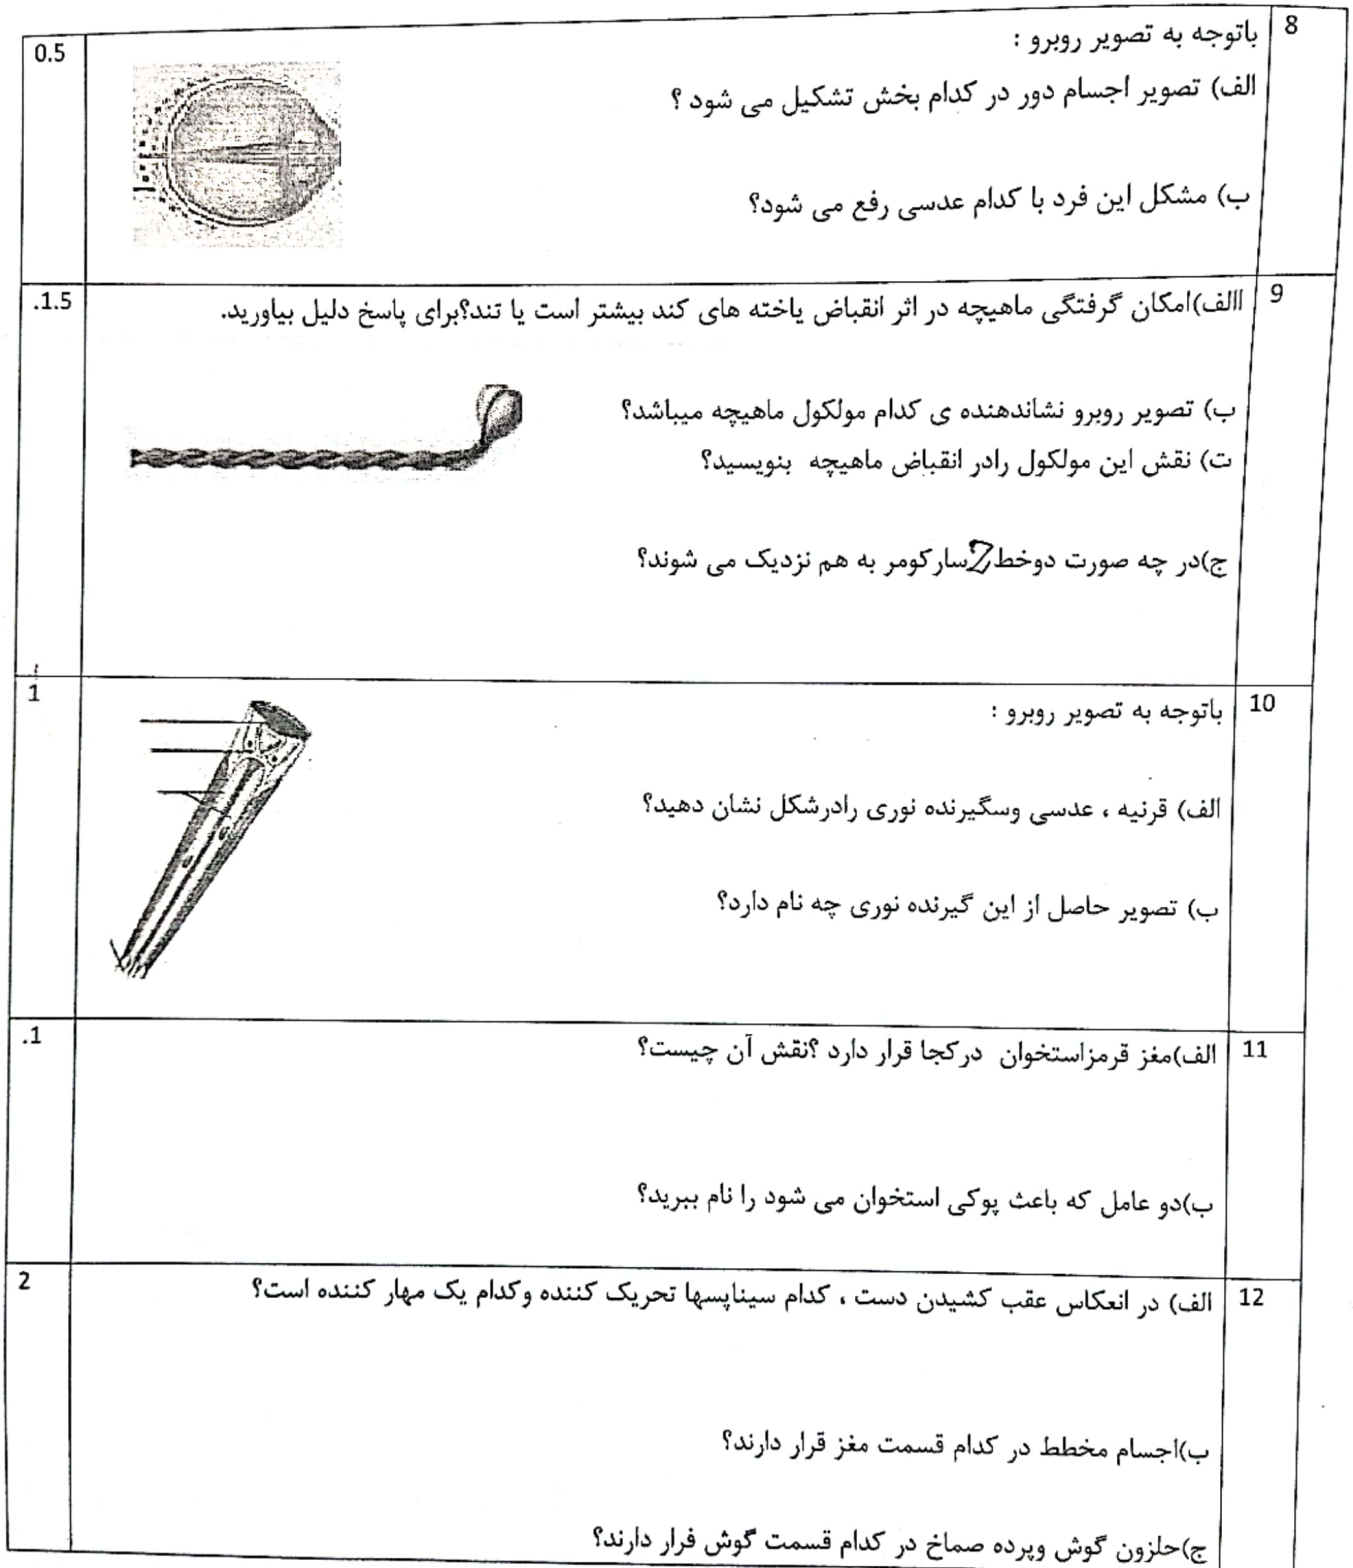 8
باتوجه به تصویر روبرو :
0.5
الف) تصویر اجسام دور در کدام بخش تشکیل می شود ؟
ب) مشکل این فرد با کدام عدسی رفع می شود؟
9
االف)امکان گرفتگی ماهیچه در اثر انقباض یاخته های کند بیشتر است یا تند؟برای پاسخ دلیل بیاورید.
.1.5
ب) تصویر روبرو نشاندهنده ی کدام مولکول ماهیچه میباشد؟
ت) نقش این مولکول رادر انقباض ماهیچه بنویسید؟
ج)در چه صورت دوخط Z سارکومر به هم نزدیک می شوند؟
10
باتوجه به تصویر روبرو :
1
الف) قرنیه ، عدسی وسگیرنده نوری رادرشکل نشان دهید؟
ب) تصویر حاصل از این گیرنده نوری چه نام دارد؟
11
الف)مغز قرمزاستخوان درکجا قرار دارد ؟نقش آن چیست؟
.1
ب)دو عامل که باعث پوکی استخوان می شود را نام ببرید؟
12
الف) در انعکاس عقب کشیدن دست ، کدام سیناپسها تحریک کننده وکدام یک مهار کننده است؟
2
ب)اجسام مخطط در کدام قسمت مغز قرار دارند؟
ج)حلزون گوش وپرده صماخ در کدام قسمت گوش فرار دارند؟